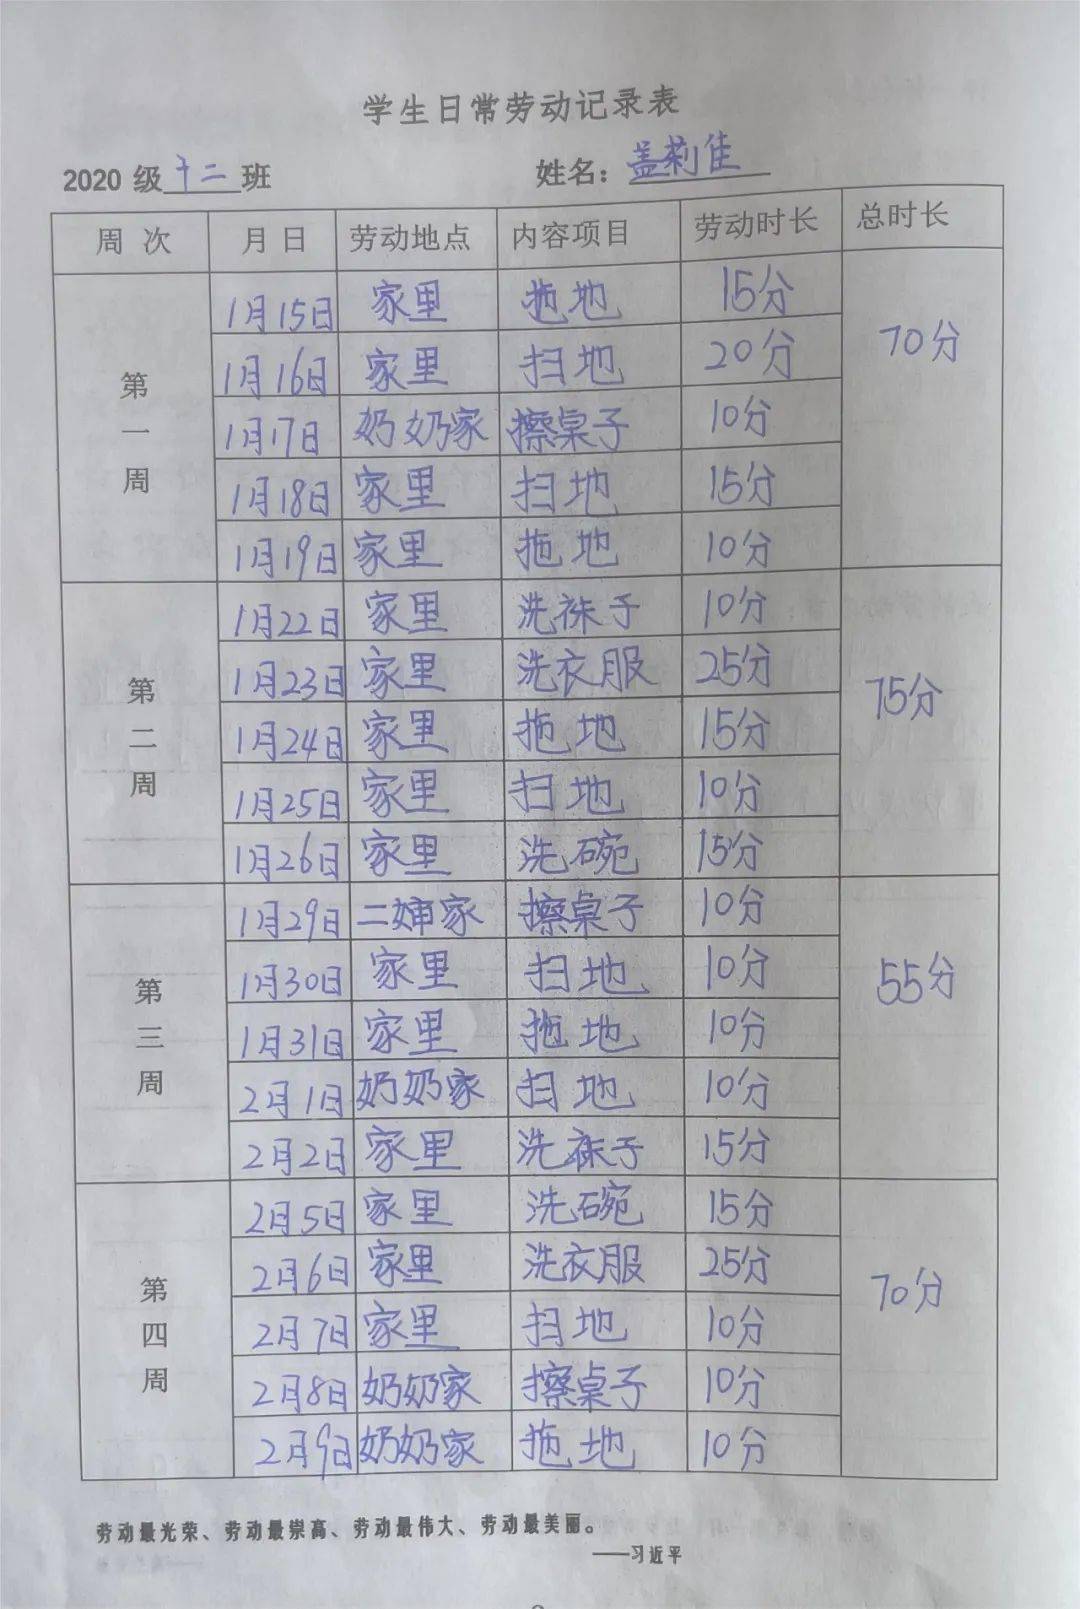 学生日常劳动记录表
2020级十二班 姓名：盖莉佳
周次 月日 劳动地点 内容项目 劳动时长 总时长
第一周 1月15日 家里 拖地 15分 70分
1月16日 家里 扫地 20分
1月17日 奶奶家 擦桌子 10分
1月18日 家里 扫地 15分
1月19日 家里 拖地 10分
第二周 1月22日 家里 洗袜子 10分 75分
1月23日 家里 洗衣服 25分
1月24日 家里 拖地 15分
1月25日 家里 扫地 10分
1月26日 家里 洗碗 15分
第三周 1月29日 二婶家 擦桌子 10分 55分
1月30日 家里 扫地 10分
1月31日 家里 拖地 10分
2月1日 奶奶家 扫地 10分
2月2日 家里 洗袜子 15分
第四周 2月5日 家里 洗碗 15分 70分
2月6日 家里 洗衣服 25分
2月7日 家里 扫地 10分
2月8日 奶奶家 擦桌子 10分
2月9日 奶奶家 拖地 10分
劳动最光荣、劳动最崇高、劳动最伟大、劳动最美丽。
——习近平